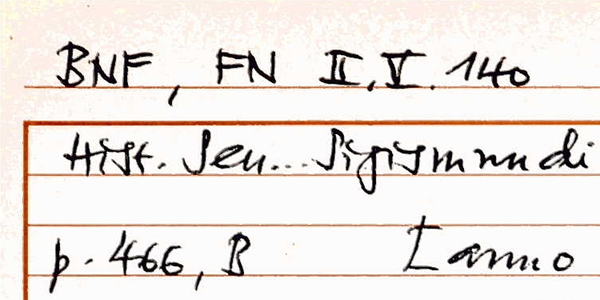 BNF, FN II.V.140
Hist. Sen... Sigismundi
p. 466, B